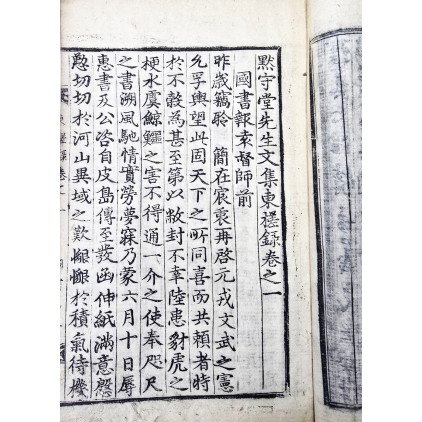 黙守堂先生文集東槎錄卷之一
國書報袁督師前
昨歲竊聆 簡在宸衷再啓元戎文武之憲
允孚輿望此固天下之所同喜而共賴者特
於不穀為甚至第以敝封不幸陸患豺虎之
梗水虞鯨鱷之害不得通一介之使奉咫尺
之書溯風馳情實勞夢寐乃蒙六月十日辱
惠書及公咨自皮島傳至發函伸紙滿意慇
懃切切於河山異域之歎惓惓於積氣待機